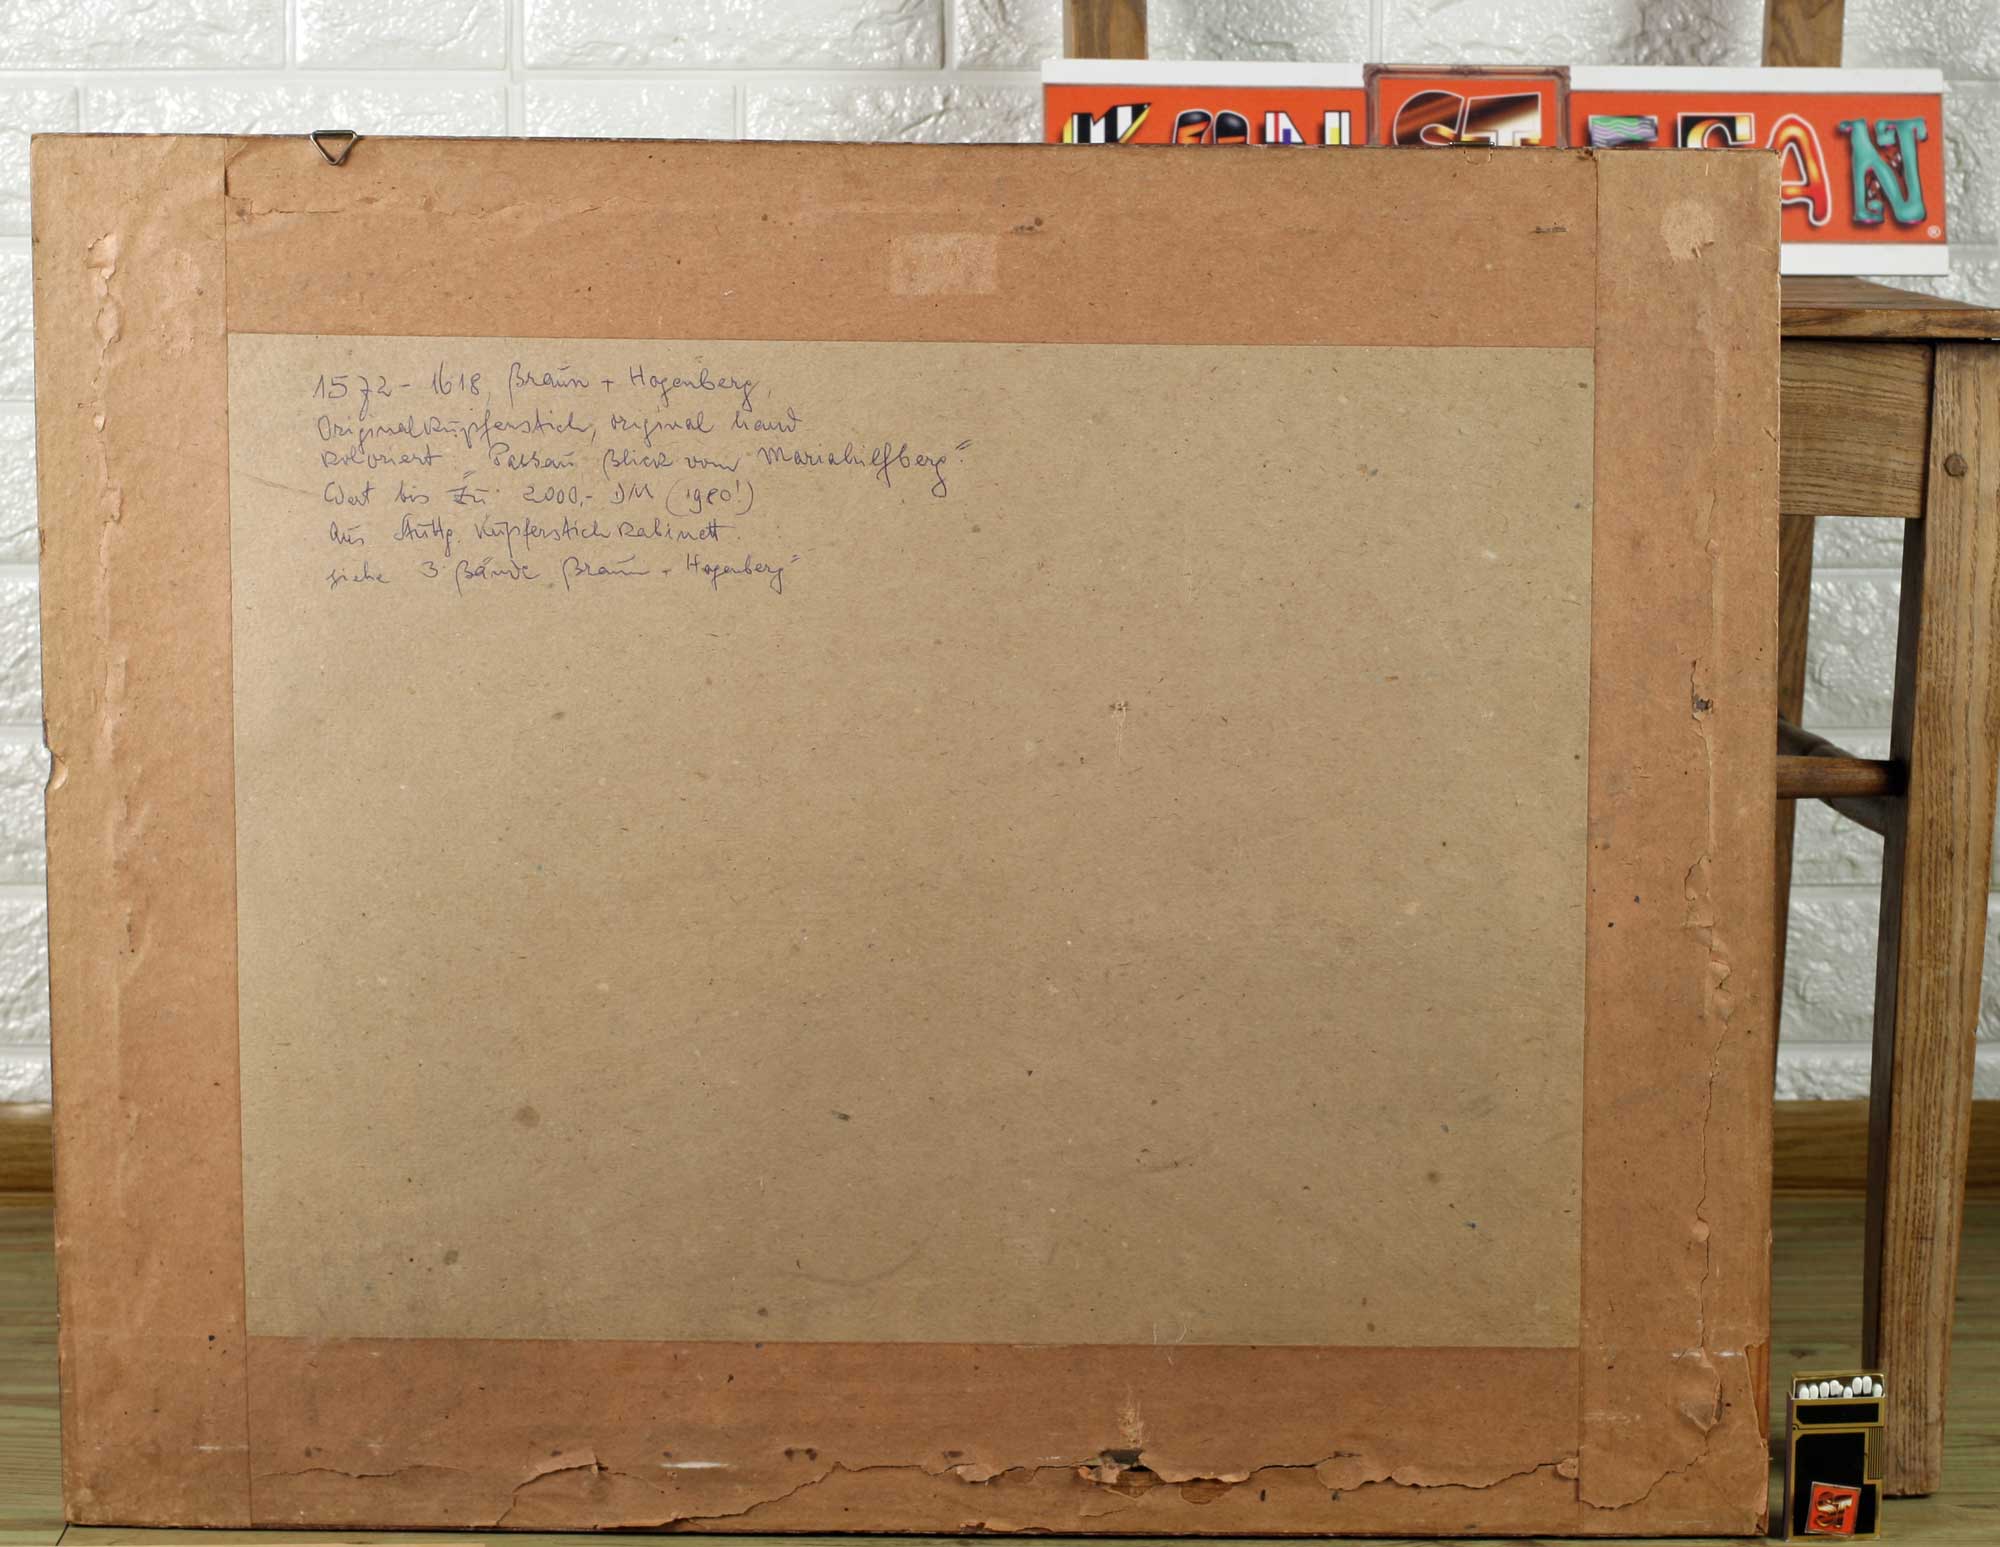 KUNSTESAN
®
1572 - 1618, Braun + Hogenberg,
Originalkupferstich, original hand
koloriert "Passau Blick vom Mariahilfberg".
Wert bis zu 2000,- DM (1980!)
Aus Stuttg. Kupferstichkabinett.
siehe 3 Bände Braun + Hogenberg"
ST